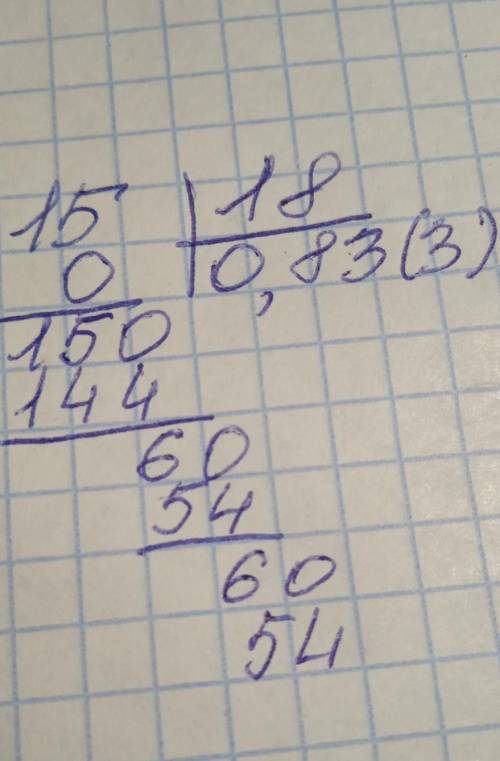 15 | 18
0 | 0,83(3)
150
144
60
54
60
54